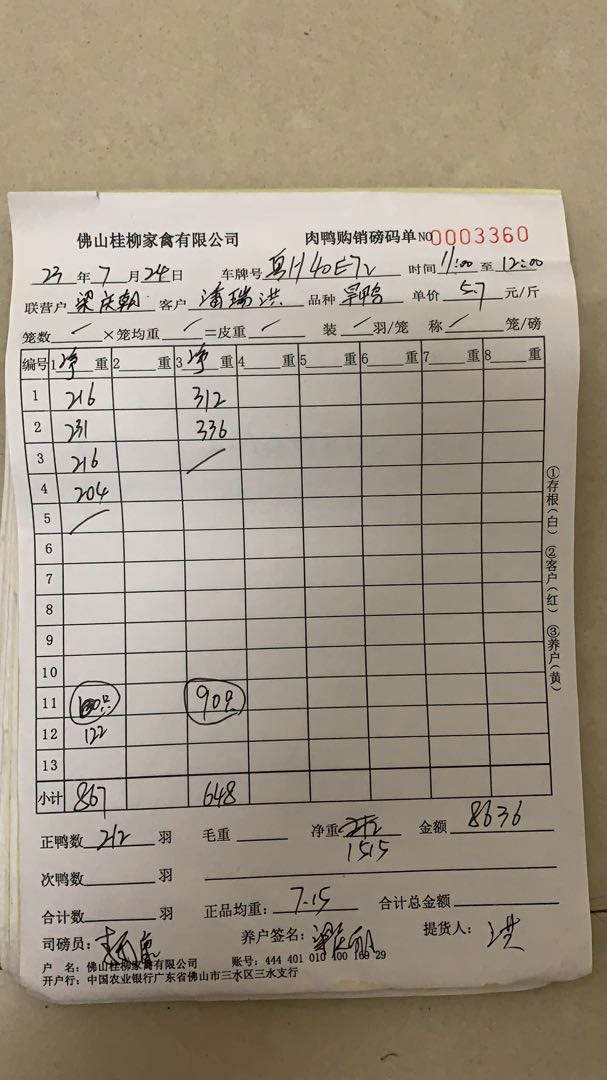 佛山桂柳家禽有限公司 肉鸭购销磅码单 NO 0003360
23 年 7 月 24 日 车牌号 粤H40E72 时间 11:00 至 12:00
联营户 梁庆朝 客户 潘瑞洪 品种 旱鸭 单价 5.7 元/斤
笼数 / ×笼均重 / =皮重 / 装 / 羽/笼 称 / 笼/磅
编号 1 净 重 2 重 3 净 重 4 重 5 重 6 重 7 重 8 重
1 216 312
2 231 336
3 216 /
4 204
5 /
6
7
8
9
10
11 90只
12 122
13
小计 867 648
正鸭数 212 羽 毛重 净重 1515 金额 8636
次鸭数 羽
合计数 羽 正品均重: 7.15 合计总金额
司磅员: 养户签名: 提货人: 洪
户 名: 佛山桂柳家禽有限公司 账号: 444 401 010 400 169 29
开户行: 中国农业银行广东省佛山市三水区三水支行
①存根(白) ②客户(红) ③养户(黄)